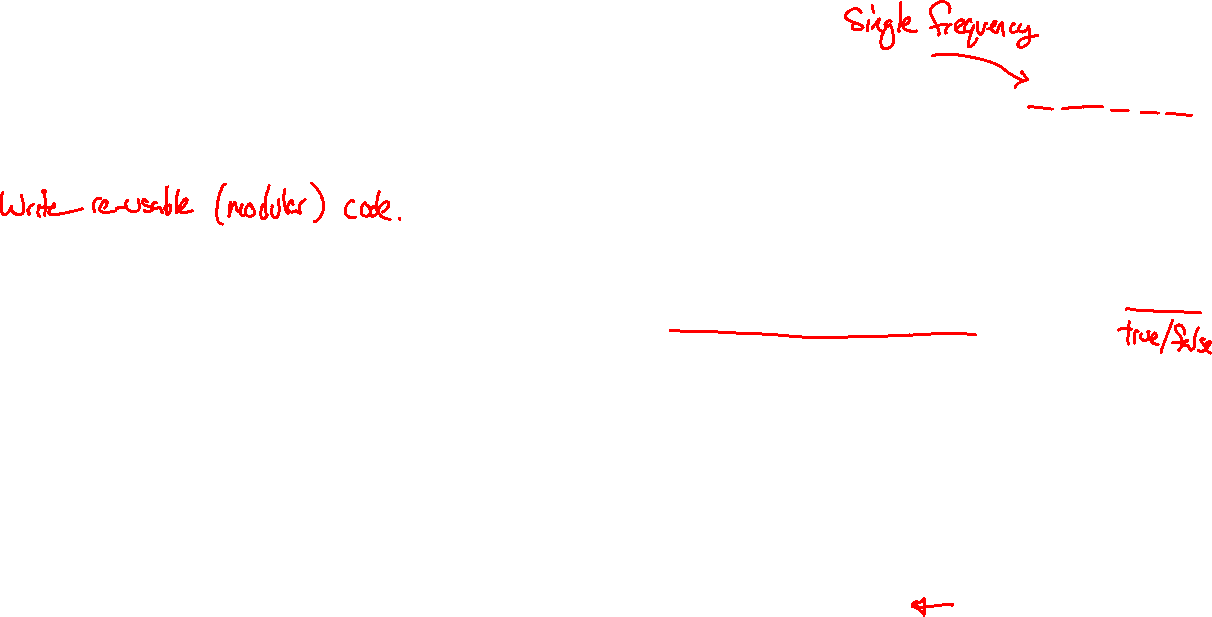 Single frequency
Write re-usable (modular) code.
true/false